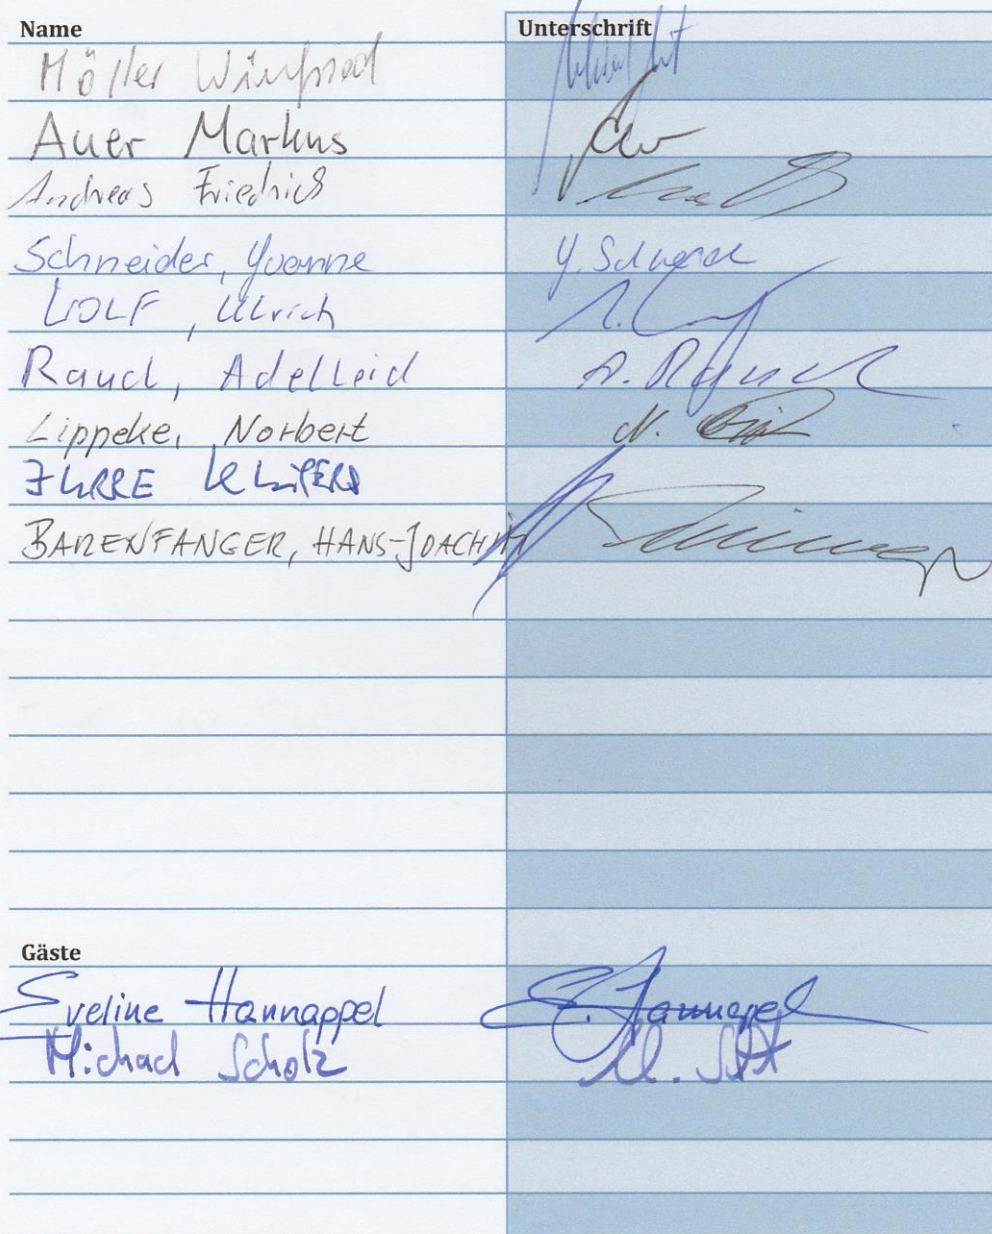 Name Unterschrift
Möller Winfried
Auer Markus
Andreas Friedrich
Schneider, Yvonne Y. Schneider
WOLF, Ulrich
Rauch, Adelheid A. Rauch
Lippeke, Norbert N.
BARENFANGER, HANS-JOACHIM
Gäste
Eveline Hannappel E. Hannappel
Michael Scholz M.